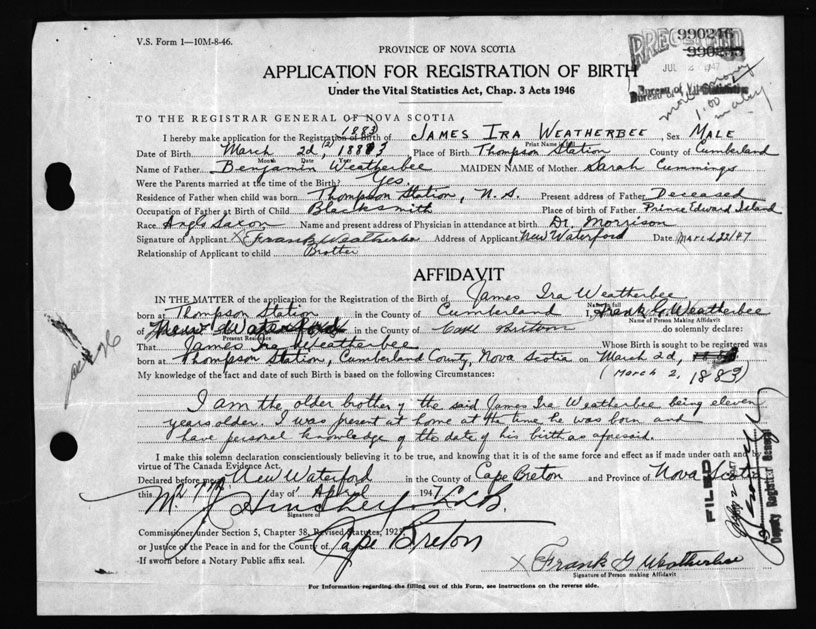 V.S. Form 1—10M-8-46.
PROVINCE OF NOVA SCOTIA
990246
APPLICATION FOR REGISTRATION OF BIRTH
JUL 2 1947
Under the Vital Statistics Act, Chap. 3 Acts 1946
Bureau of Vital Statistics
more money
1.00
TO THE REGISTRAR GENERAL OF NOVA SCOTIA
1883
I hereby make application for the Registration of Birth of JAMES IRA WEATHERBEE, Sex MALE
Print Name in full
Date of Birth March 2d, (2) 1883 Place of Birth Thompson Station County of Cumberland
Month Date Year
Name of Father Benjamin Weatherbee MAIDEN NAME of Mother Sarah Cummings
Were the Parents married at the time of the Birth? Yes.
Residence of Father when child was born Thompson Station, N.S. Present address of Father Deceased
Occupation of Father at Birth of Child Blacksmith Place of birth of Father Prince Edward Island
Race Anglo Saxon Name and present address of Physician in attendance at birth Dr. Morrison
Signature of Applicant X Frank Weatherbee Address of Applicant New Waterford Date March 22/47
Relationship of Applicant to child Brother
AFFIDAVIT
IN THE MATTER of the application for the Registration of the Birth of James Ira Weatherbee
Name in full
born at Thompson Station in the County of Cumberland I, Frank G. Weatherbee
Name of Person Making Affidavit
of New Waterford in the County of Cape Breton do solemnly declare:
Present Residence
That James Ira Weatherbee Whose Birth is sought to be registered was
born at Thompson Station, Cumberland County, Nova Scotia on March 2d,
My knowledge of the fact and date of such Birth is based on the following Circumstances: (March 2, 1883)
I am the older brother of the said James Ira Weatherbee being eleven
years older. I was present at home at the time he was born and
have personal knowledge of the date of his birth as aforesaid.
I make this solemn declaration conscientiously believing it to be true, and knowing that it is of the same force and effect as if made under oath and by
virtue of The Canada Evidence Act.
Declared before me at New Waterford in the County of Cape Breton and Province of Nova Scotia
this day of April 1947
Signature of
Commissioner under Section 5, Chapter 38, Revised Statutes, 1923
or Justice of the Peace in and for the County of Cape Breton
-If sworn before a Notary Public affix seal.
X Frank G Weatherbee
Signature of Person making Affidavit
For Information regarding the filling out of this Form, see instructions on the reverse side.
FILED
Deputy Registrar General